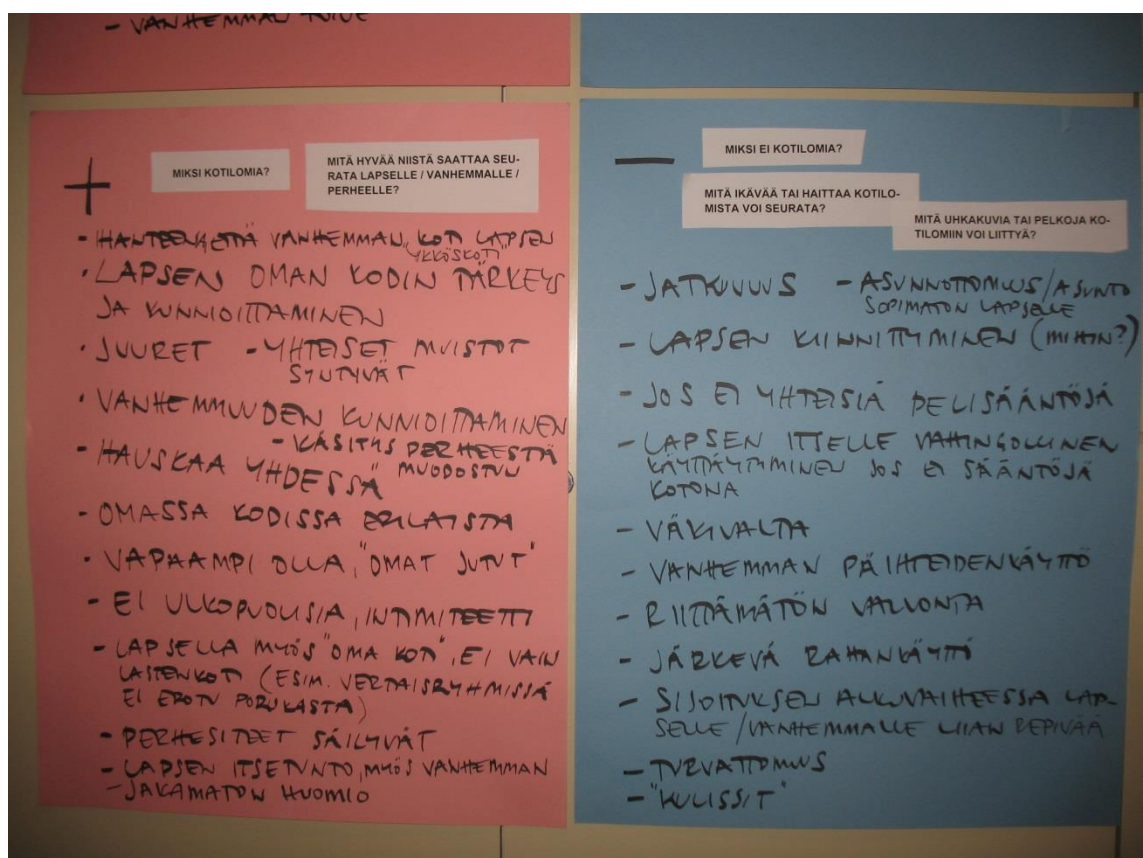 - VANHEMMAN TOIVE
+
MIKSI KOTILOMIA?
MITÄ HYVÄÄ NIISTÄ SAATTAA SEU-
RATA LAPSELLE / VANHEMMALLE /
PERHEELLE?
- VANHEMMAN KOTI LAPSEN
"YKKÖSKOTI"
· LAPSEN OMAN KODIN TÄRKEYS
JA KUNNIOITTAMINEN
· JUURET - YHTEISET MUISTOT
SYNTYVÄT
· VANHEMMUUDEN KUNNIOITTAMINEN
- KÄSITYS PERHEESTÄ
MUODOSTUU
- HAUSKAA YHDESSÄ
- OMASSA KODISSA ERILAISTA
- VAPAAMPI OLLA, "OMAT JUTUT"
- EI ULKOPUOLISIA, INTIMITEETTI
- LAPSELLA MYÖS "OMA KOTI", EI VAIN
LASTENKOTI (ESIM. VERTAISRYHMISSÄ
EI EROTU PORUKASTA)
- PERHESITEET SÄILYVÄT
- LAPSEN ITSETUNTO, MYÖS VANHEMMAN
- JAKAMATON HUOMIO
—
MIKSI EI KOTILOMIA?
MITÄ IKÄVÄÄ TAI HAITTAA KOTILO-
MISTA VOI SEURATA?
MITÄ UHKAKUVIA TAI PELKOJA KO-
TILOMIIN VOI LIITTYÄ?
- JATKUVUUS - ASUNNOTTOMUUS/ASUNTO
SOPIMATON LAPSELLE
- LAPSEN KIINNITTYMINEN (MIHIN?)
- JOS EI YHTEISIÄ PELISÄÄNTÖJÄ
- LAPSEN ITSELLE VAHINGOLLINEN
KÄYTTÄYTYMINEN JOS EI SÄÄNTÖJÄ
KOTONA
- VÄKIVALTA
- VANHEMMAN PÄIHTEIDENKÄYTTÖ
- RIITTÄMÄTÖN VALVONTA
- JÄRKEVÄ RAHANKÄYTTÖ
- SIJOITUKSEN ALKUVAIHEESSA LAP-
SELLE /VANHEMMALLE LIIAN REPIVÄÄ
- TURVATTOMUUS
- "KULISSIT"